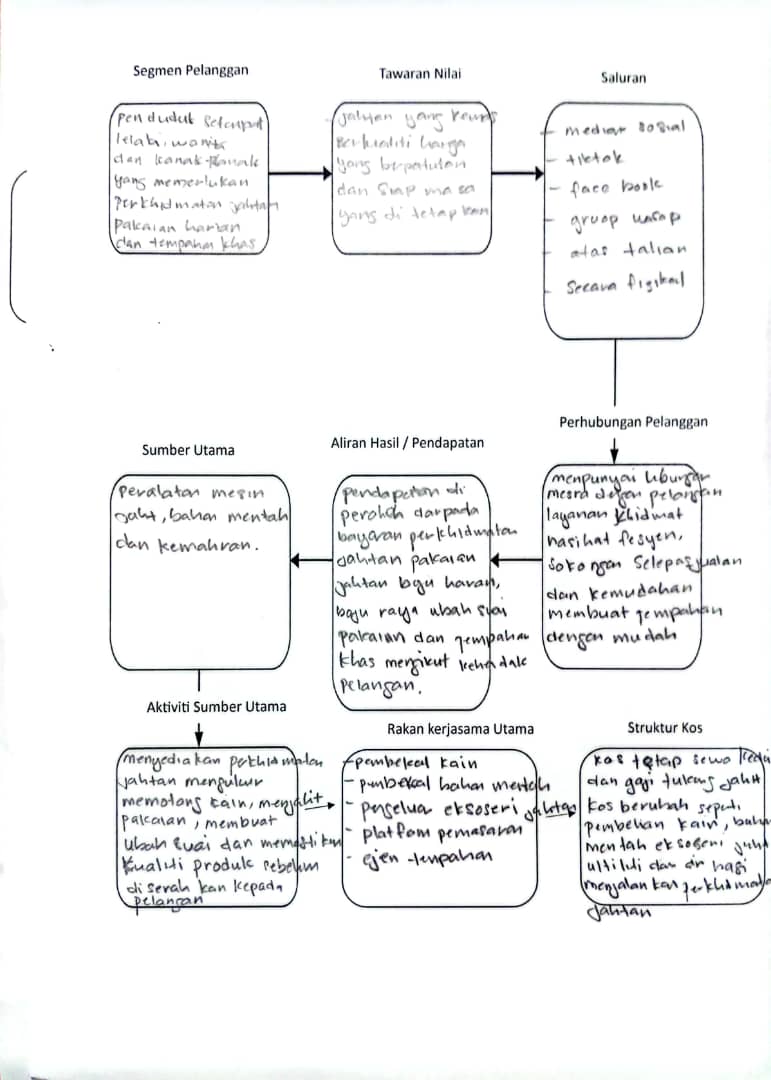 Segmen Pelanggan
Penduduk setempat
lelaki, wanita
dan kanak-kanak
yang memerlukan
Perkhidmatan jahitan
Pakaian harian
dan tempahan khas
Tawaran Nilai
jahitan yang kemas
berkualiti harga
yang berpatutan
dan siap masa
yang di tetap kan
Saluran
- mediar sosial
- tiktok
- face book
- gruop wasap
- atas talian
- Secara fizikal
Perhubungan Pelanggan
menpunyai hubungan
mesra dengan pelangan
layanan khidmat
nasihat fesyen,
sokongan selepas jualan
dan kemudahan
membuat tempahan
dengan mudah
Aliran Hasil / Pendapatan
pendapatan di
peroleh darpada
bayaran perkhidmatan
jahitan pakaian
jahitan baju
baju raya ubah suai
pakaian dan tempahan
khas mengikut
pelangan.
Sumber Utama
peralatan mesin
jahit, bahan mentah
dan kemahran.
Aktiviti Sumber Utama
menyediakan perkhidmatan
jahtan mengukur
memotong kain, menjahit
pakaian, membuat
ubah suai dan memastikan
kualiti produk sebelum
di serah kan kepada
pelangan
Rakan kerjasama Utama
- pembekal kain
- pembekal bahan mentah
- eksoseri jahitan
- platfom pemasaran
- ejen tempahan
Struktur Kos
kos tetap sewa kedai
dan gaji tukang jahit
kos berubah seperti
pembelian kain, bahan
mentah eksoseri jahit
utiliti dan bagi
menjalan kan perkhidmatan
jahitan